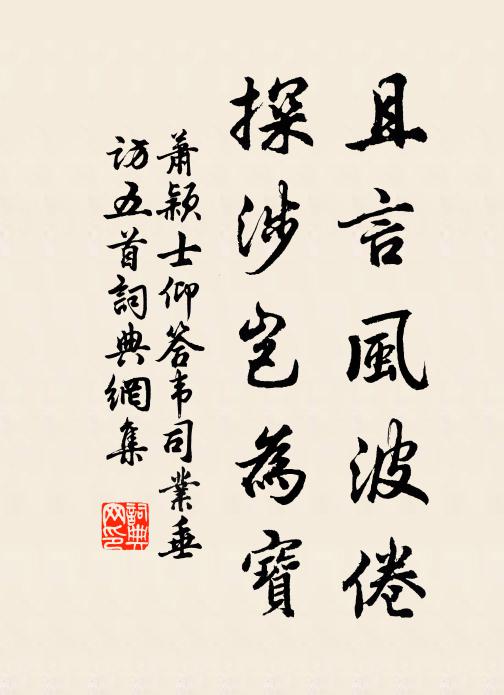 且言風波倦
探涉豈為寶
蕭穎士仰答韦司業垂
訪五首詞典網集
詞典
网印